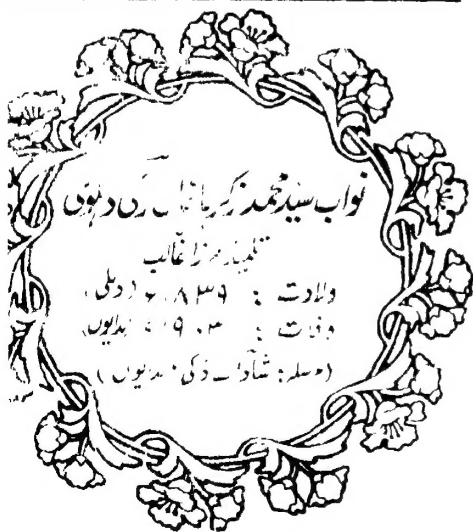 نواب سید محمد زکریا خاں زکی دہلوی
تلمیذ مرزا غالب
ولادت : ۱۸۳۹ء (دہلی)
وفات : ۱۹۰۳ء (بدایوں)
(مرسلہ: شاداب ذکی بدایوں)